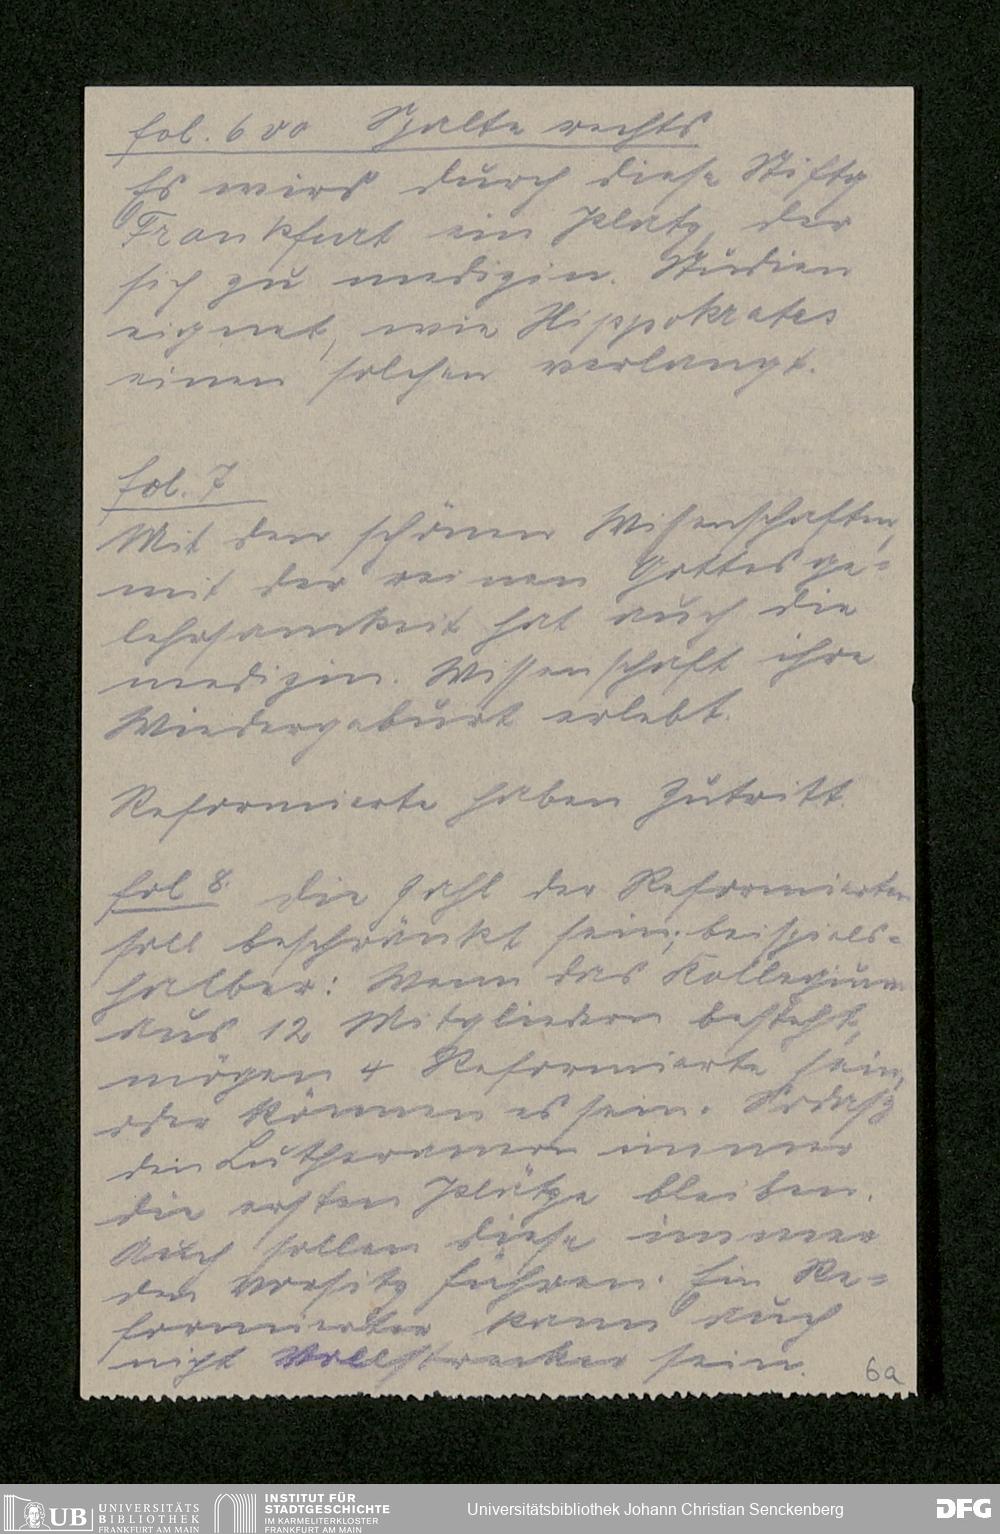 fol. 6 vo Spalte rechts
Es wird durch diese Stiftg
Frankfurt ein Platz, der
sich zu medizin. Studien
eignet, wie Hippokrates
einen solchen verlangt.
fol. 7
Mit den schönen Wissenschaften,
mit der reinen Gottesge-
lehrsamkeit hat auch die
medizin. Wissenschaft ihre
Wiedergeburt erlebt.
Reformierte haben Zutritt.
fol 8. Die Zahl der Reformierten
soll beschränkt sein; beispiels-
halber: Wenn das Kollegium
aus 12 Mitgliedern besteht,
mögen 4 Reformierte sein,
oder können es sein. Sodaß
den Lutheranern immer
die ersten Plätze bleiben.
Auch sollen diese immer
den Vorsitz führen. Ein Re-
formierter kann auch
nicht Vollstrecker sein.
6a
UB UNIVERSITÄTS
BIBLIOTHEK
FRANKFURT AM MAIN
INSTITUT FÜR
STADTGESCHICHTE
IM KARMELITERKLOSTER
FRANKFURT AM MAIN
Universitätsbibliothek Johann Christian Senckenberg
DFG